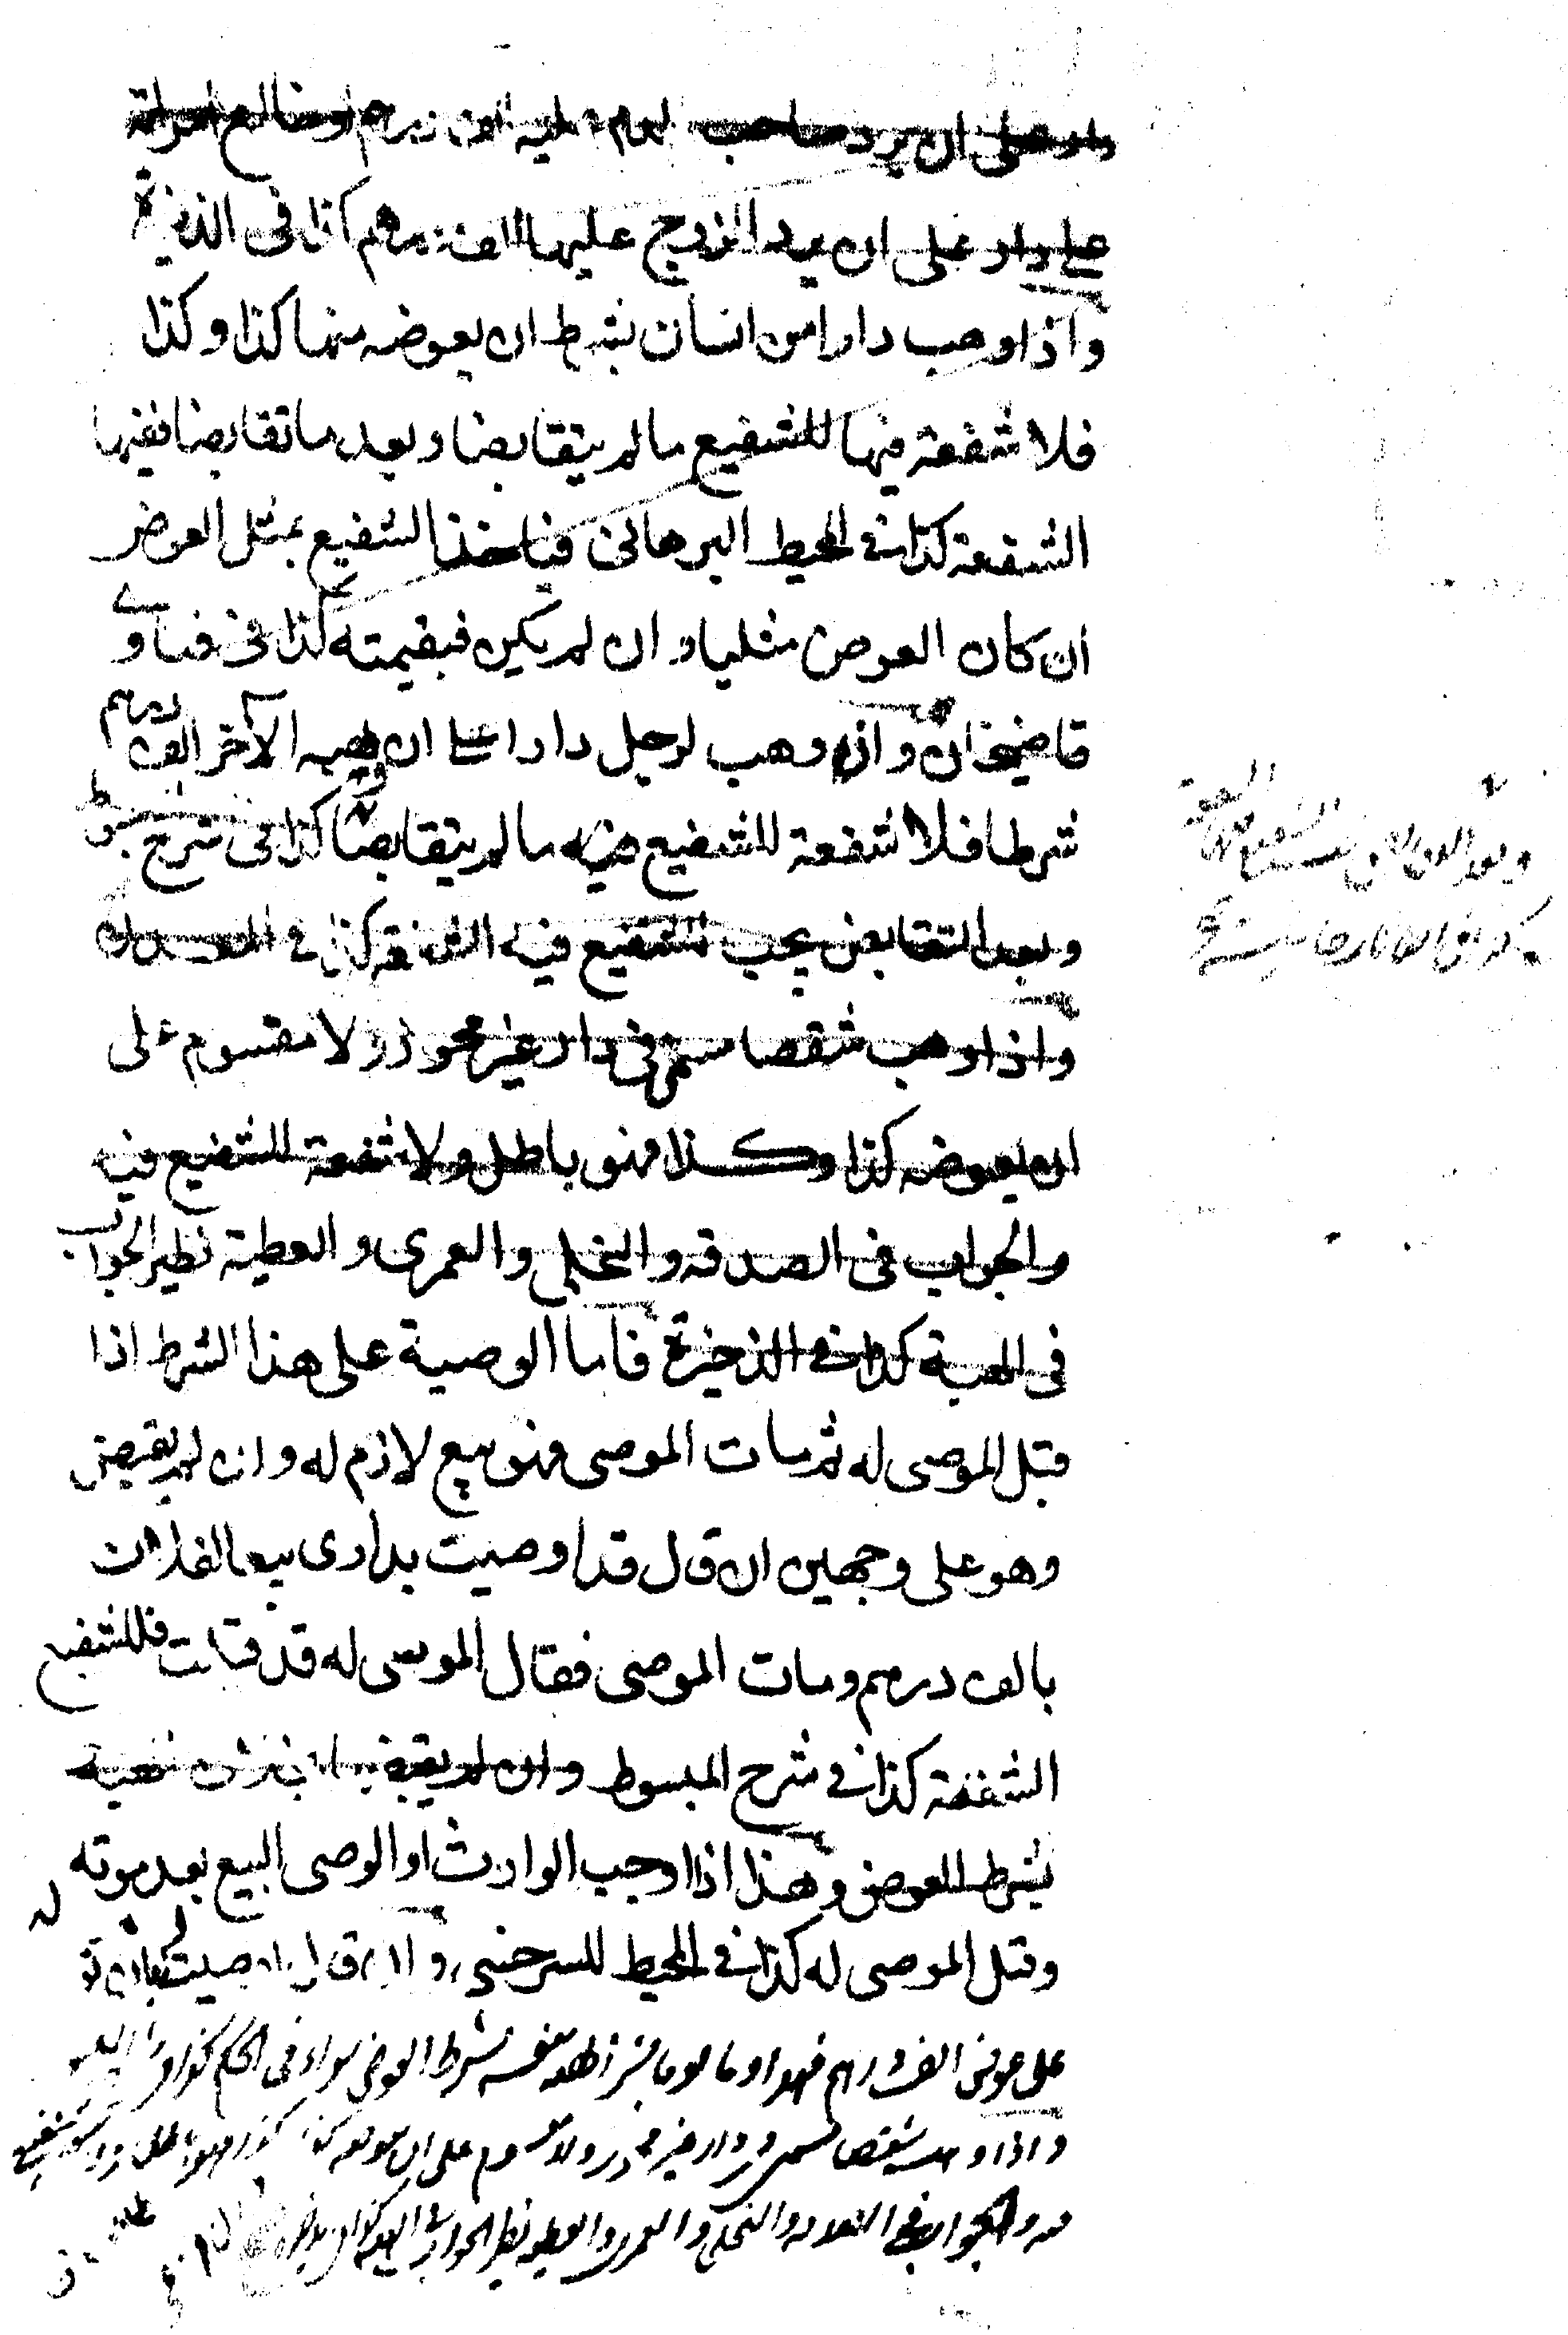 دار على ان يرد صاحب عليه الف درهم او صالح امراته
على دار على ان يرد الزوج عليها الف درهم كذا فى الذخيرة
واذا وهب دارا من انسان بشرط ان يعوضه منها كذا وكذا
فلا شفعة فيها للشفيع مالم يتقابضا وبعد ما تقابضا ففيها
الشفعة كذا فى المحيط البرهانى فياخذ الشفيع بمثل العوض
ان كان العوض مثليا وان لم يكن فبقيمته كذا فى فتاوى
قاضيخان وان وهب لرجل دارا على ان يهبه الآخر الف درهم
شرطا فلا شفعة للشفيع فيه مالم يتقابضا كذا فى شرح
وبعد التقابض يجب للشفيع فيه الشفعة كذا فى
واذا وهب شقصا مسمى فى دار غير محوز ولا مقسوم على
ان يعوضه كذا وكذا فهو باطل ولا شفعة للشفيع فيه
والجواب فى الصدقه والنحلى والعمرى والعطية نظير الجواب
فى الهبة كذا فى الذخيرة فاما الوصية على هذا الشرط اذا
قبل الموصى له ثم مات الموصى فهو بيع لازم له وان لم يقبض
وهو على وجهين ان قال قد اوصيت بدارى بيعا لفلان
بالف درهم ومات الموصى فقال الموصى له قد قبلت فللشفيع
الشفعة كذا فى شرح المبسوط وان لم يقبض
بشرط العوض وهذا اذا اوجب الوارث او الوصى البيع بعد موته
وقبل الموصى له كذا فى المحيط للسرخسى وان قال اوصيت له بان
على عوض الف درهم فهذا وما لو باشر الهبة بنفسه بشرط العوض سواء فى الحكم كذا فى
واذا وهب شقصا مسمى فى دار غير محوز ولا مقسوم على ان يعوضه كذا كذا فهو باطل
فيه والجواب فى الصدقة والنحلى والعمرى والعطية نظير الجواب فى الهبة كذا فى